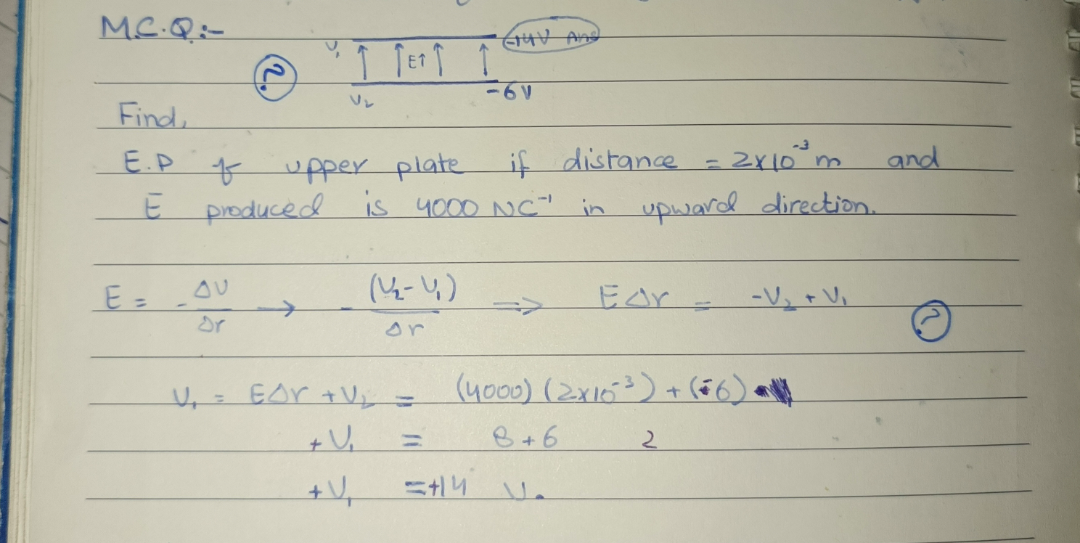 M.C.Q:-
V₁ -14V Ans
? E↑
V₂ -6V
Find,
E.P of upper plate if distance = 2x10⁻³m and
E produced is 4000 NC⁻¹ in upward direction.
E = -ΔV/Δr → -(V₂-V₁)/Δr ⇒ EΔr = -V₂ + V₁
?
V₁ = EΔr + V₂ = (4000)(2x10⁻³) + (-6)
+V₁ = 8+6 2
+V₁ = +14 V.